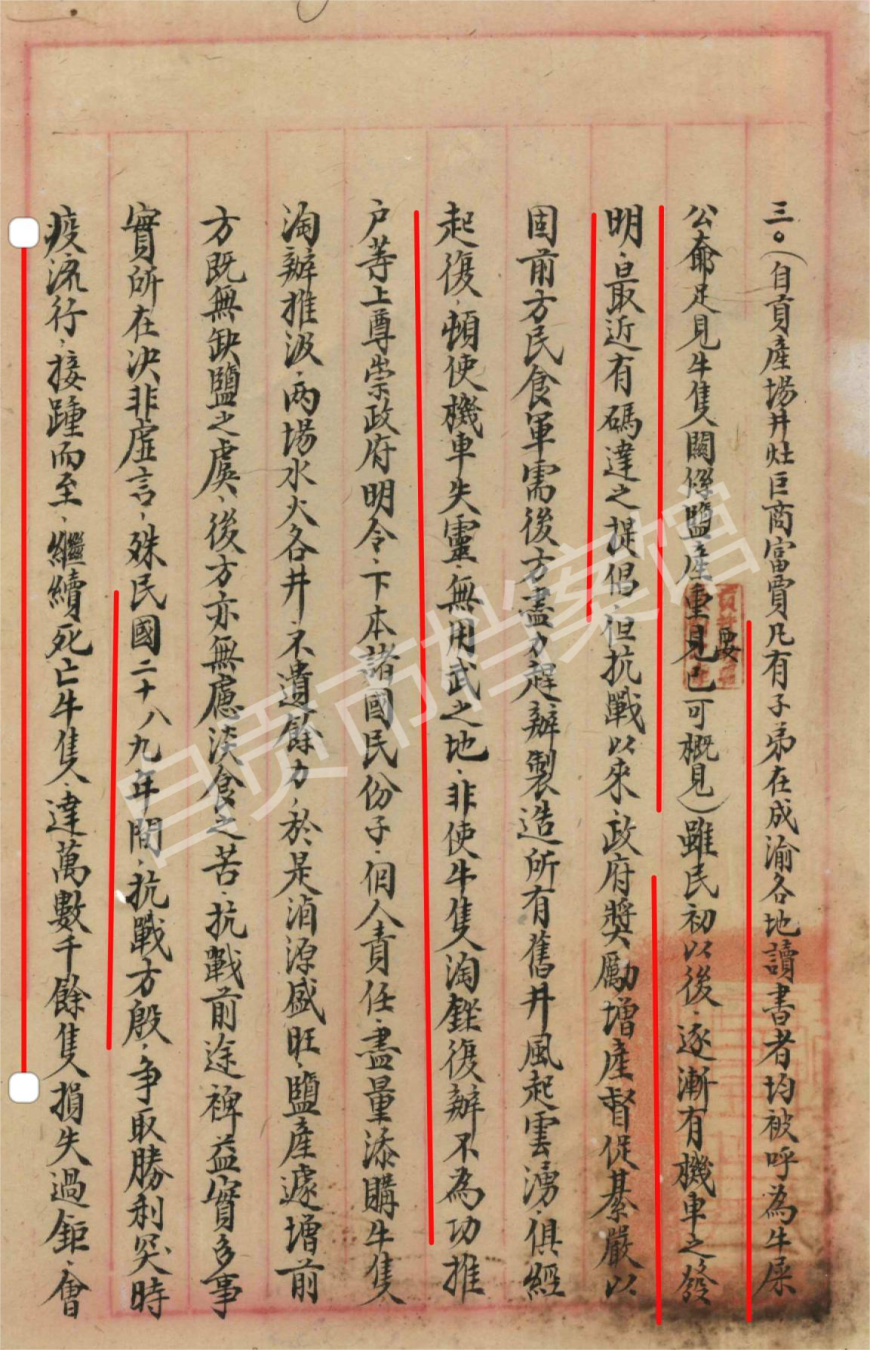 三。（自貢產場井灶巨商富賈凡有子弟在成渝各地讀書者均被呼為牛屎
公爺足見牛隻關係鹽產重要已可概見）雖民初以後、逐漸有機車之發
明、最近有碼達之提倡、但抗戰以來、政府獎勵增產督促綦嚴以
固前方民食軍需後方盡力趕辦製造所有舊井風起雲湧、俱經
起復、頓使機車失靈、無用武之地、非使牛隻淘銼復辦不為功推
户等上尊崇政府明令、下本諸國民份子、個人責任、盡量添購牛隻
淘辦推汲、兩場水火各井、不遺餘力、於是滷源盛旺、鹽產遽增前
方既無缺鹽之虞、後方亦無慮淡食之苦、抗戰前途裨益實多事
實所在決非虛言、殊民國二十八九年間、抗戰方殷、爭取勝利突時
疫流行、接踵而至、繼續死亡牛隻、達萬數千餘隻損失過鉅、會
自贡市档案馆